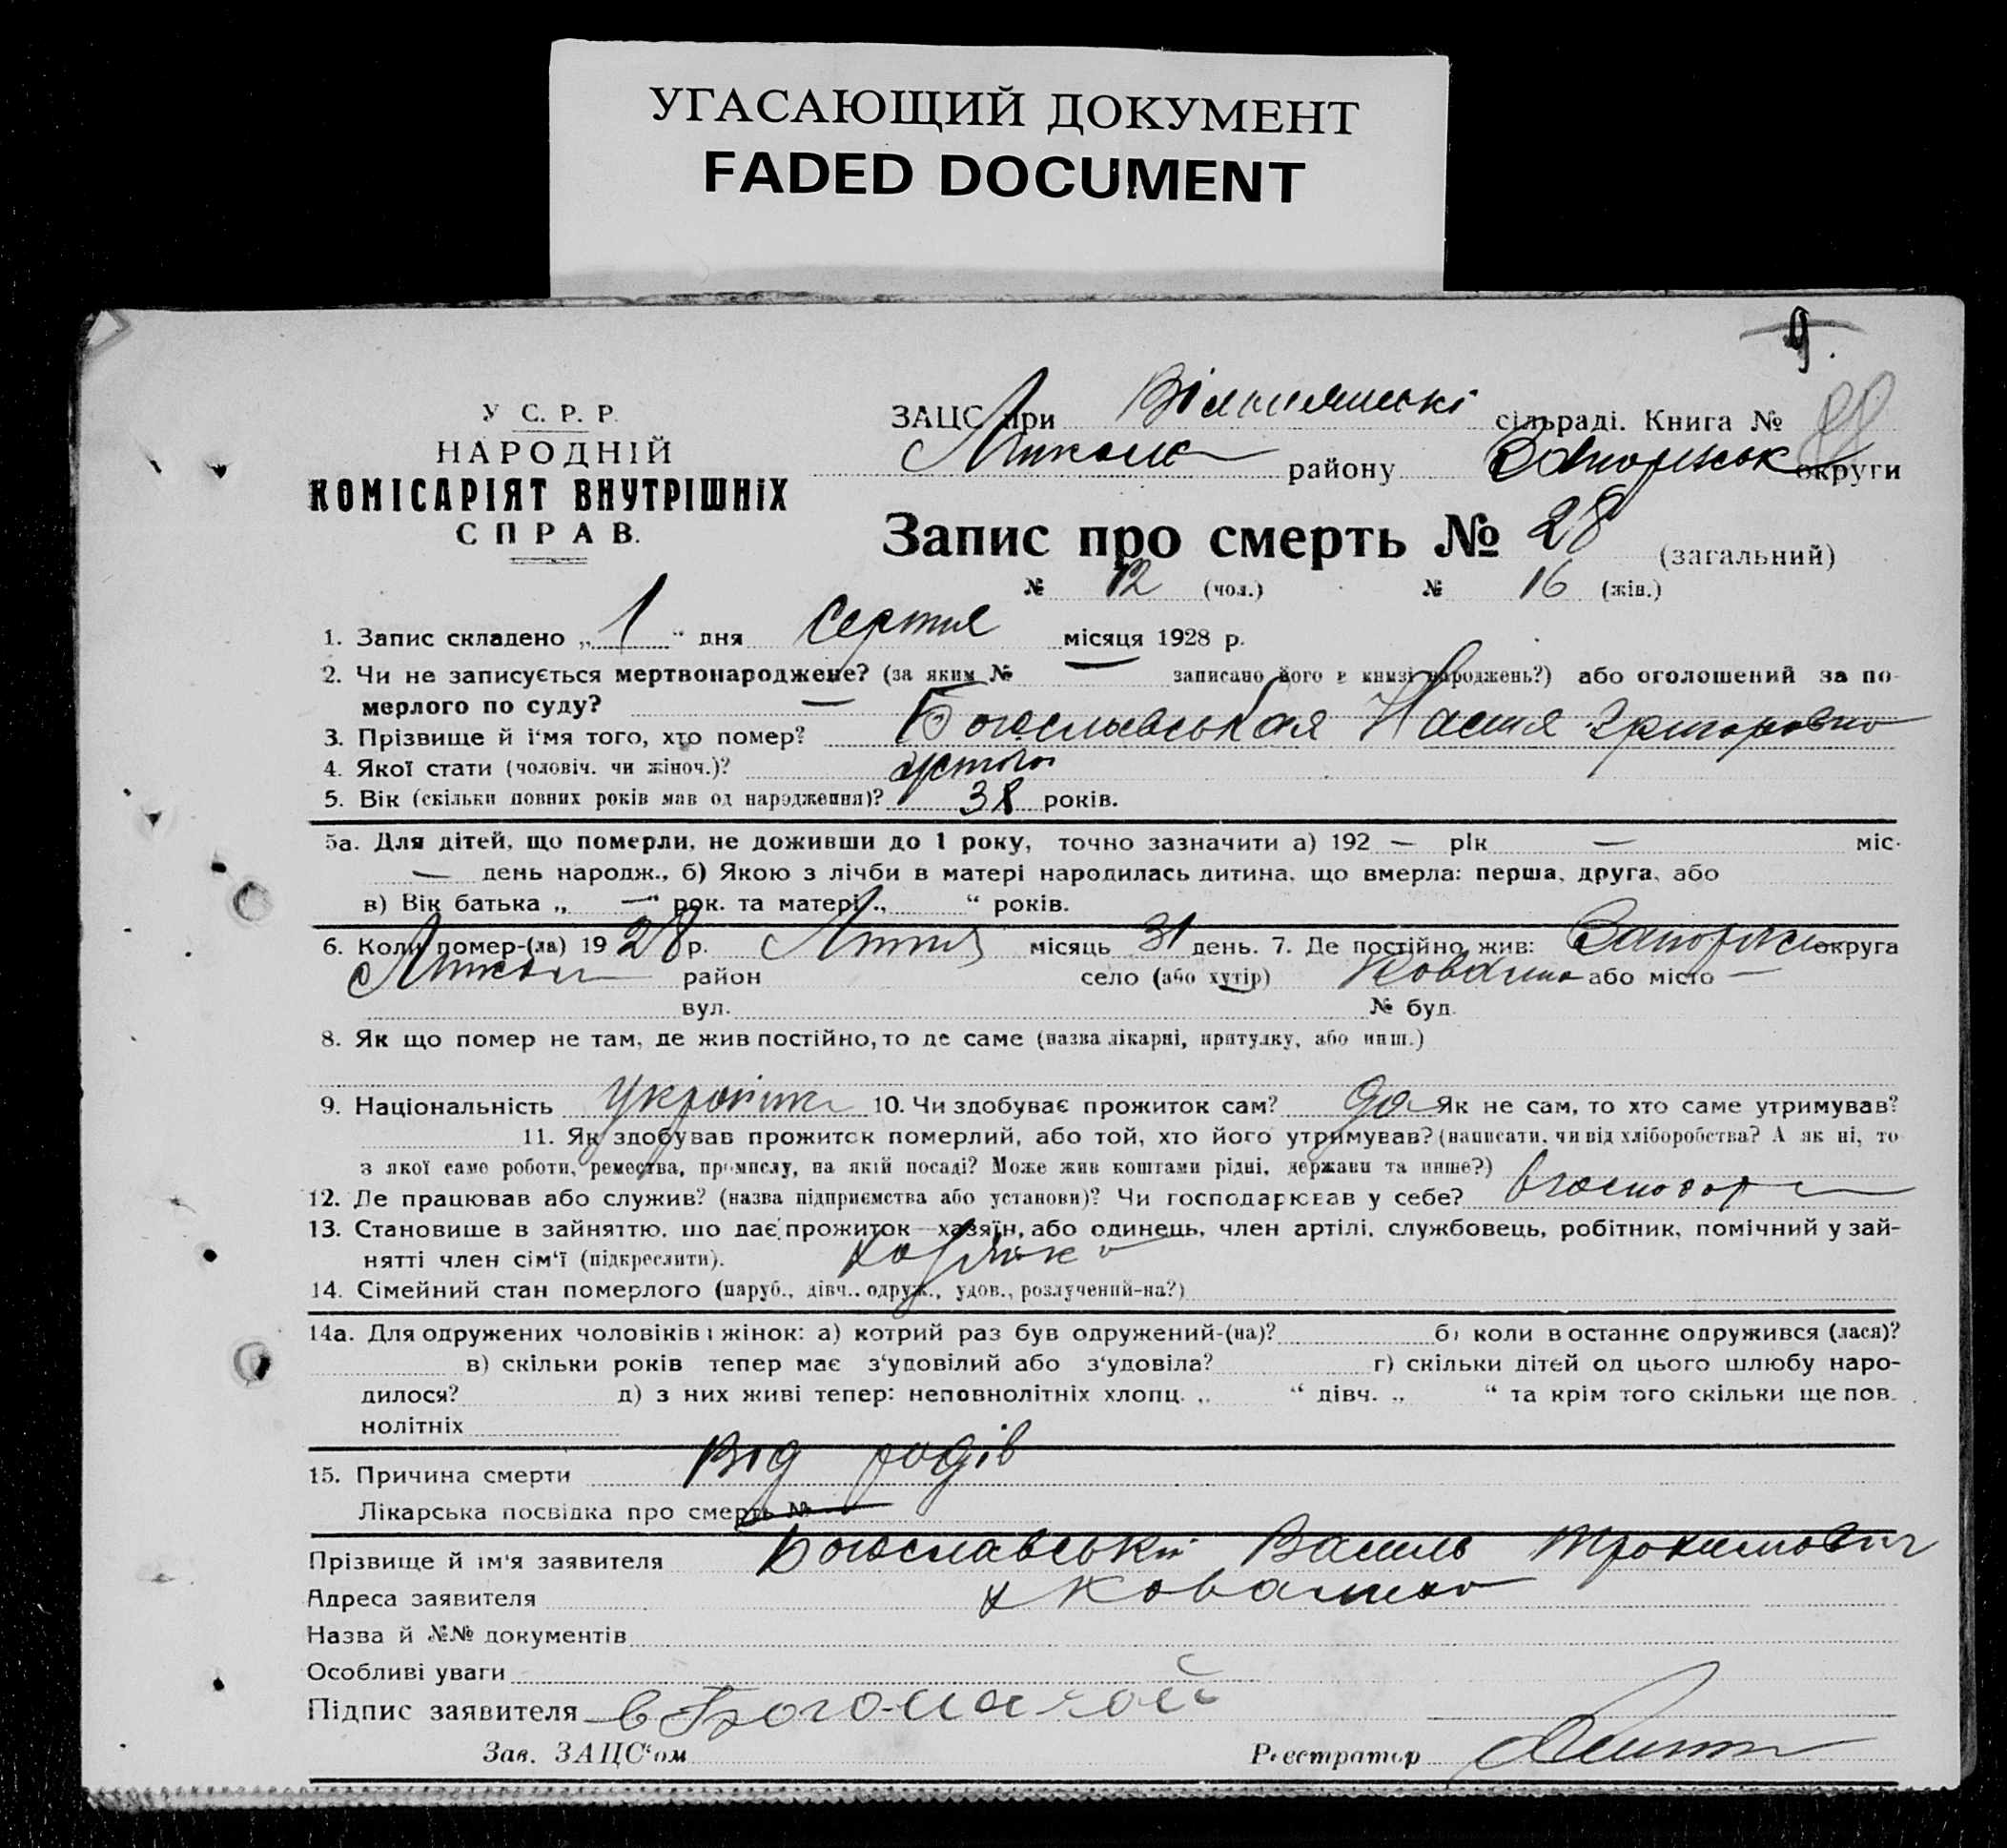 УГАСАЮЩИЙ ДОКУМЕНТ
FADED DOCUMENT
9.
У С. Р. Р.
НАРОДНІЙ
КОМІСАРІЯТ ВНУТРІШНІХ
СПРАВ.
ЗАЦС при сільраді. Книга №
району округи
Запис про смерть № 28 (загальний)
№ 12 (чол.) № 16 (жін.)
1. Запис складено „ 1 “ дня Серпня місяця 1928 р.
2. Чи не записується мертвонароджене? (за яким № — записано його в книзі народжень?) або оголошений за по-
мерлого по суду? —
3. Прізвище й і'мя того, хто помер? Настя
4. Якої стати (чоловіч. чи жіноч.)?
5. Вік (скільки повних років мав од народження)? 38 років.
5а. Для дітей, що померли, не доживши до 1 року, точно зазначити а) 192 — рік — міс.
— день народж., б) Якою з лічби в матері народилась дитина, що вмерла: перша, друга, або
в) Вік батька „ — “ рок. та матері „ “ років.
6. Коли помер-(ла) 19 28 р. Липня місяць 31 день. 7. Де постійно жив: округа
район село (або хутір) або місто —
вул. № буд.
8. Як що помер не там, де жив постійно, то де саме (назва лікарні, притулку, або инш.)
9. Національність 10. Чи здобуває прожиток сам? да Як не сам, то хто саме утримував?
11. Як здобував прожиток померлий, або той, хто його утримував? (написати, чи від хліборобства? А як ні, то
з якої саме роботи, ремества, промислу, на якій посаді? Може жив коштами рідні, держави та инше?)
12. Де працював або служив? (назва підприємства або установи)? Чи господарював у себе?
13. Становище в зайняттю, що дає прожиток — хазяїн, або одинець, член артілі, службовець, робітник, помічний у зай-
нятті член сім'ї (підкреслити).
14. Сімейний стан померлого (паруб., дівч., одруж., удов., розлучений-на?)
14а. Для одружених чоловіків і жінок: а) котрий раз був одружений-(на)? б) коли востаннє одружився (лася)?
в) скільки років тепер має з'удовілий або з'удовіла? г) скільки дітей од цього шлюбу наро-
дилося? д) з них живі тепер: неповнолітніх хлопц. „ “ дівч. „ “ та крім того скільки ще пов.
нолітніх
15. Причина смерти Від родів
Лікарська посвідка про смерть №
Прізвище й ім'я заявителя Богославський Василь Трохимович
Адреса заявителя
Назва й №№ документів
Особливі уваги
Підпис заявителя
Зав. ЗАЦС'ом Реєстратор